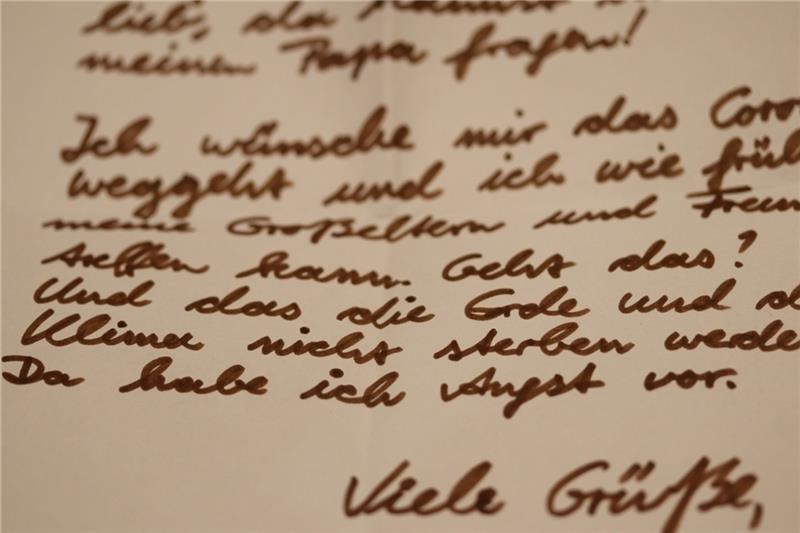 lieb, da kannst
meinen Papa fragen!
Ich wünsche mir das Coro
weggeht und ich wie früh
meine Großeltern und Freun
treffen kann. Geht das?
Und das die Erde und d
Klima nicht sterben werde
Da habe ich Angst vor.
Viele Grüße,